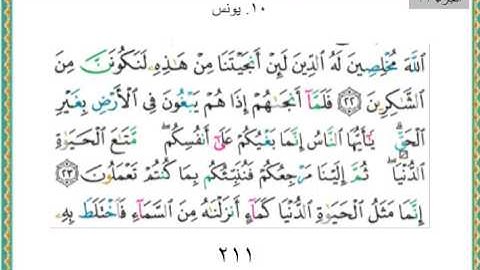 ١٠. يونس
ٱللَّهَ مُخْلِصِينَ لَهُ ٱلدِّينَ لَئِنْ أَنجَيْتَنَا مِنْ هَٰذِهِۦ لَنَكُونَنَّ مِنَ
ٱلشَّٰكِرِينَ ﴿٢٢﴾ فَلَمَّآ أَنجَىٰهُمْ إِذَا هُمْ يَبْغُونَ فِى ٱلْأَرْضِ بِغَيْرِ
ٱلْحَقِّ ۗ يَٰٓأَيُّهَا ٱلنَّاسُ إِنَّمَا بَغْيُكُمْ عَلَىٰٓ أَنفُسِكُم ۖ مَّتَٰعَ ٱلْحَيَوٰةِ
ٱلدُّنْيَا ۖ ثُمَّ إِلَيْنَا مَرْجِعُكُمْ فَنُنَبِّئُكُم بِمَا كُنتُمْ تَعْمَلُونَ ﴿٢٣﴾
إِنَّمَا مَثَلُ ٱلْحَيَوٰةِ ٱلدُّنْيَا كَمَآءٍ أَنزَلْنَٰهُ مِنَ ٱلسَّمَآءِ فَٱخْتَلَطَ بِهِۦ
٢١١